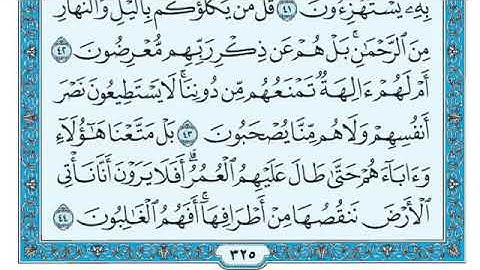 بِهِۦ يَسْتَهْزِءُونَ ٤١ قُلْ مَن يَكْلَؤُكُم بِٱلَّيْلِ وَٱلنَّهَارِ
مِنَ ٱلرَّحْمَٰنِ ۗ بَلْ هُمْ عَن ذِكْرِ رَبِّهِم مُّعْرِضُونَ ٤٢
أَمْ لَهُمْ ءَالِهَةٌ تَمْنَعُهُم مِّن دُونِنَا ۚ لَا يَسْتَطِيعُونَ نَصْرَ
أَنفُسِهِمْ وَلَا هُم مِّنَّا يُصْحَبُونَ ٤٣ بَلْ مَتَّعْنَا هَٰٓؤُلَآءِ
وَءَابَآءَهُمْ حَتَّىٰ طَالَ عَلَيْهِمُ ٱلْعُمُرُ ۗ أَفَلَا يَرَوْنَ أَنَّا نَأْتِى
ٱلْأَرْضَ نَنقُصُهَا مِنْ أَطْرَافِهَآ ۚ أَفَهُمُ ٱلْغَٰلِبُونَ ٤٤
٣٢٥